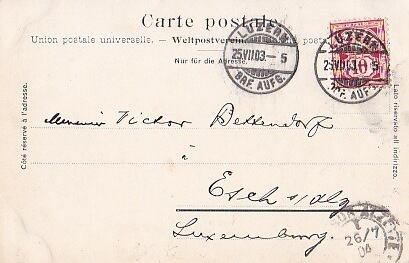 Carte postale.
Union postale universelle. — Weltpostverein. —
Nur für die Adresse.
LUZERN
25.VII.03.- 5
BRF. AUFG.
LUZERN
25.VII.03.- 5
BRF. AUFG.
10
Côté réservé à l'adresse.
Lato riservato all indirizzo.
Monsieur Victor Bettendorf
à
Esch s/alg
Luxemburg.
26/7